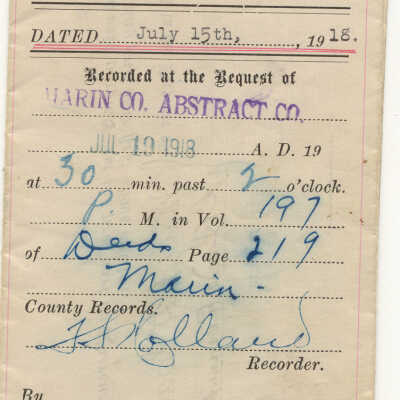 DATED July 15th, 1918.
Recorded at the Request of
MARIN CO. ABSTRACT CO.
JUL 19 1918 A. D. 19
at 30 min. past 2 o'clock.
P. M. in Vol. 197
of Deeds Page 219
Marin -
County Records.
Holland
Recorder.
By